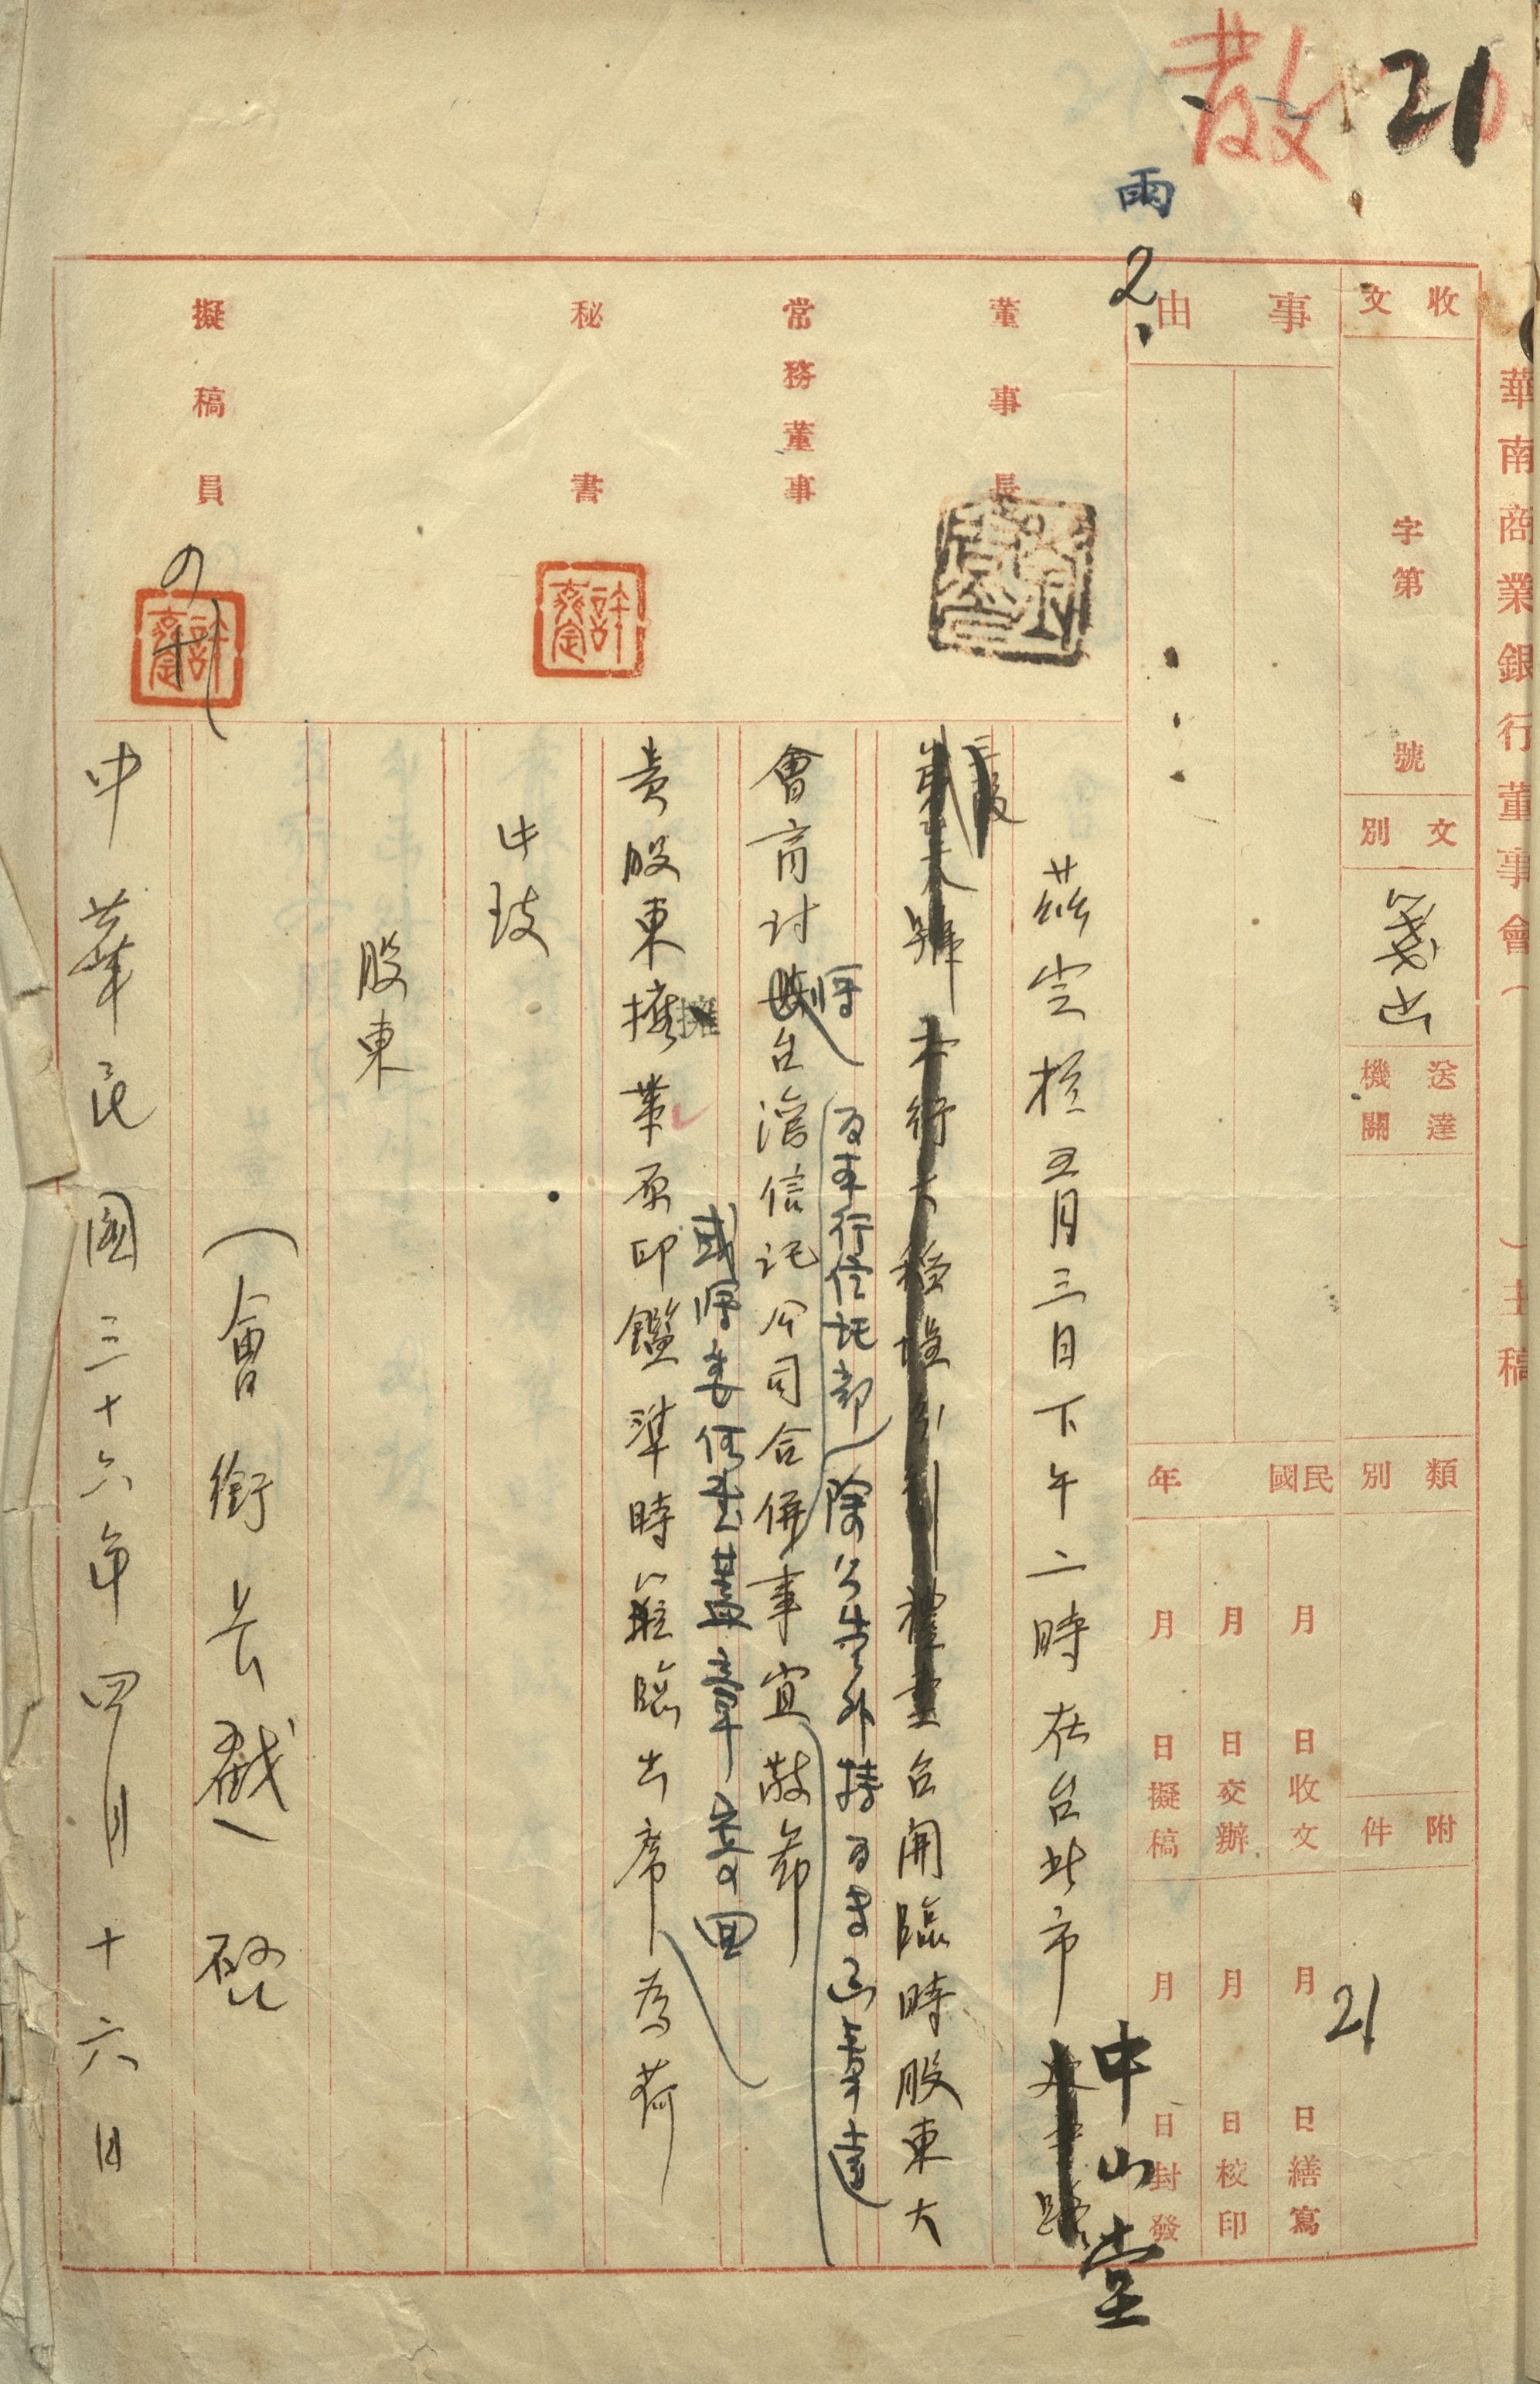 21
散
雨
2
華南商業銀行董事會（　）主稿
收文
字第
號
文別
箋函
送達機關
類別
附件
21
事由
民國　年
月　日收文
月　日交辦
月　日擬稿
月　日繕寫
月　日校印
月　日封發
董事長
常務董事
秘書
擬稿員
茲定於五月三日下午二時在台北市
中山堂
召開臨時股東大
為本行信託部
除公告外特
會商討
將
台灣信託公司合併事宜敬希
或將委任書蓋章寄回
貴股東攜帶原印鑑準時蒞臨出席為荷
攜
此致
股東
（會銜長戳）啓
中華民國三十六年四月十六日